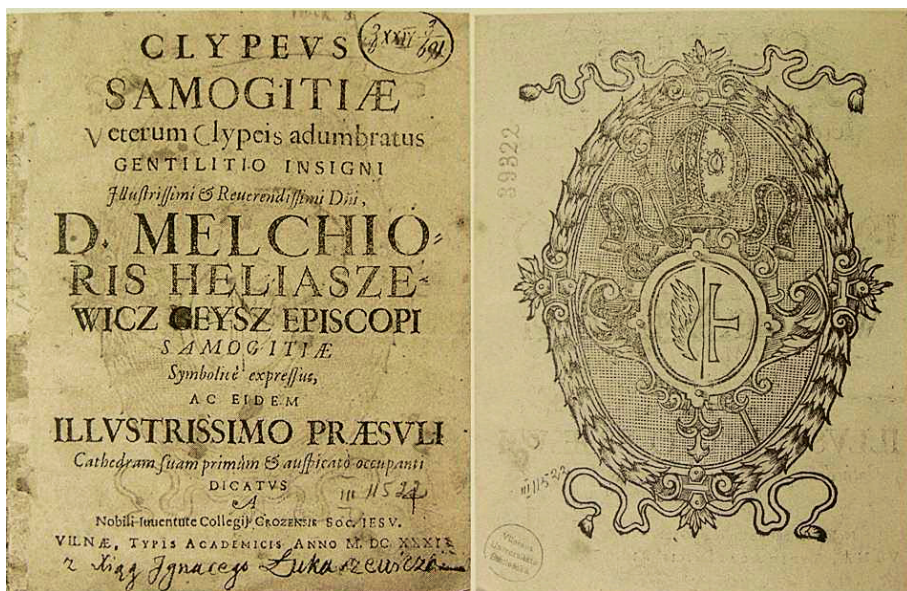 CLYPEVS
SAMOGITIÆ
Veterum Clypeis adumbratus
GENTILITIO INSIGNI
Illustrissimi & Reuerendissimi Dñi,
D. MELCHIO-
RIS HELIASZE-
WICZ GEYSZ EPISCOPI
SAMOGITIÆ
Symbolicè expressus,
AC EIDEM
ILLVSTRISSIMO PRÆSVLI
Cathedram suam primùm & auspicatò occupanti
DICATVS
A
III 11522
Nobili Iuuentute Collegij CROZENSIS SOC. IESV.
VILNÆ, TYPIS ACADEMICIS ANNO M. DC
z Xiąg Jgnacego Łukaszewicza
39322
III 11522
Vilniaus
Universiteto
Biblioteka